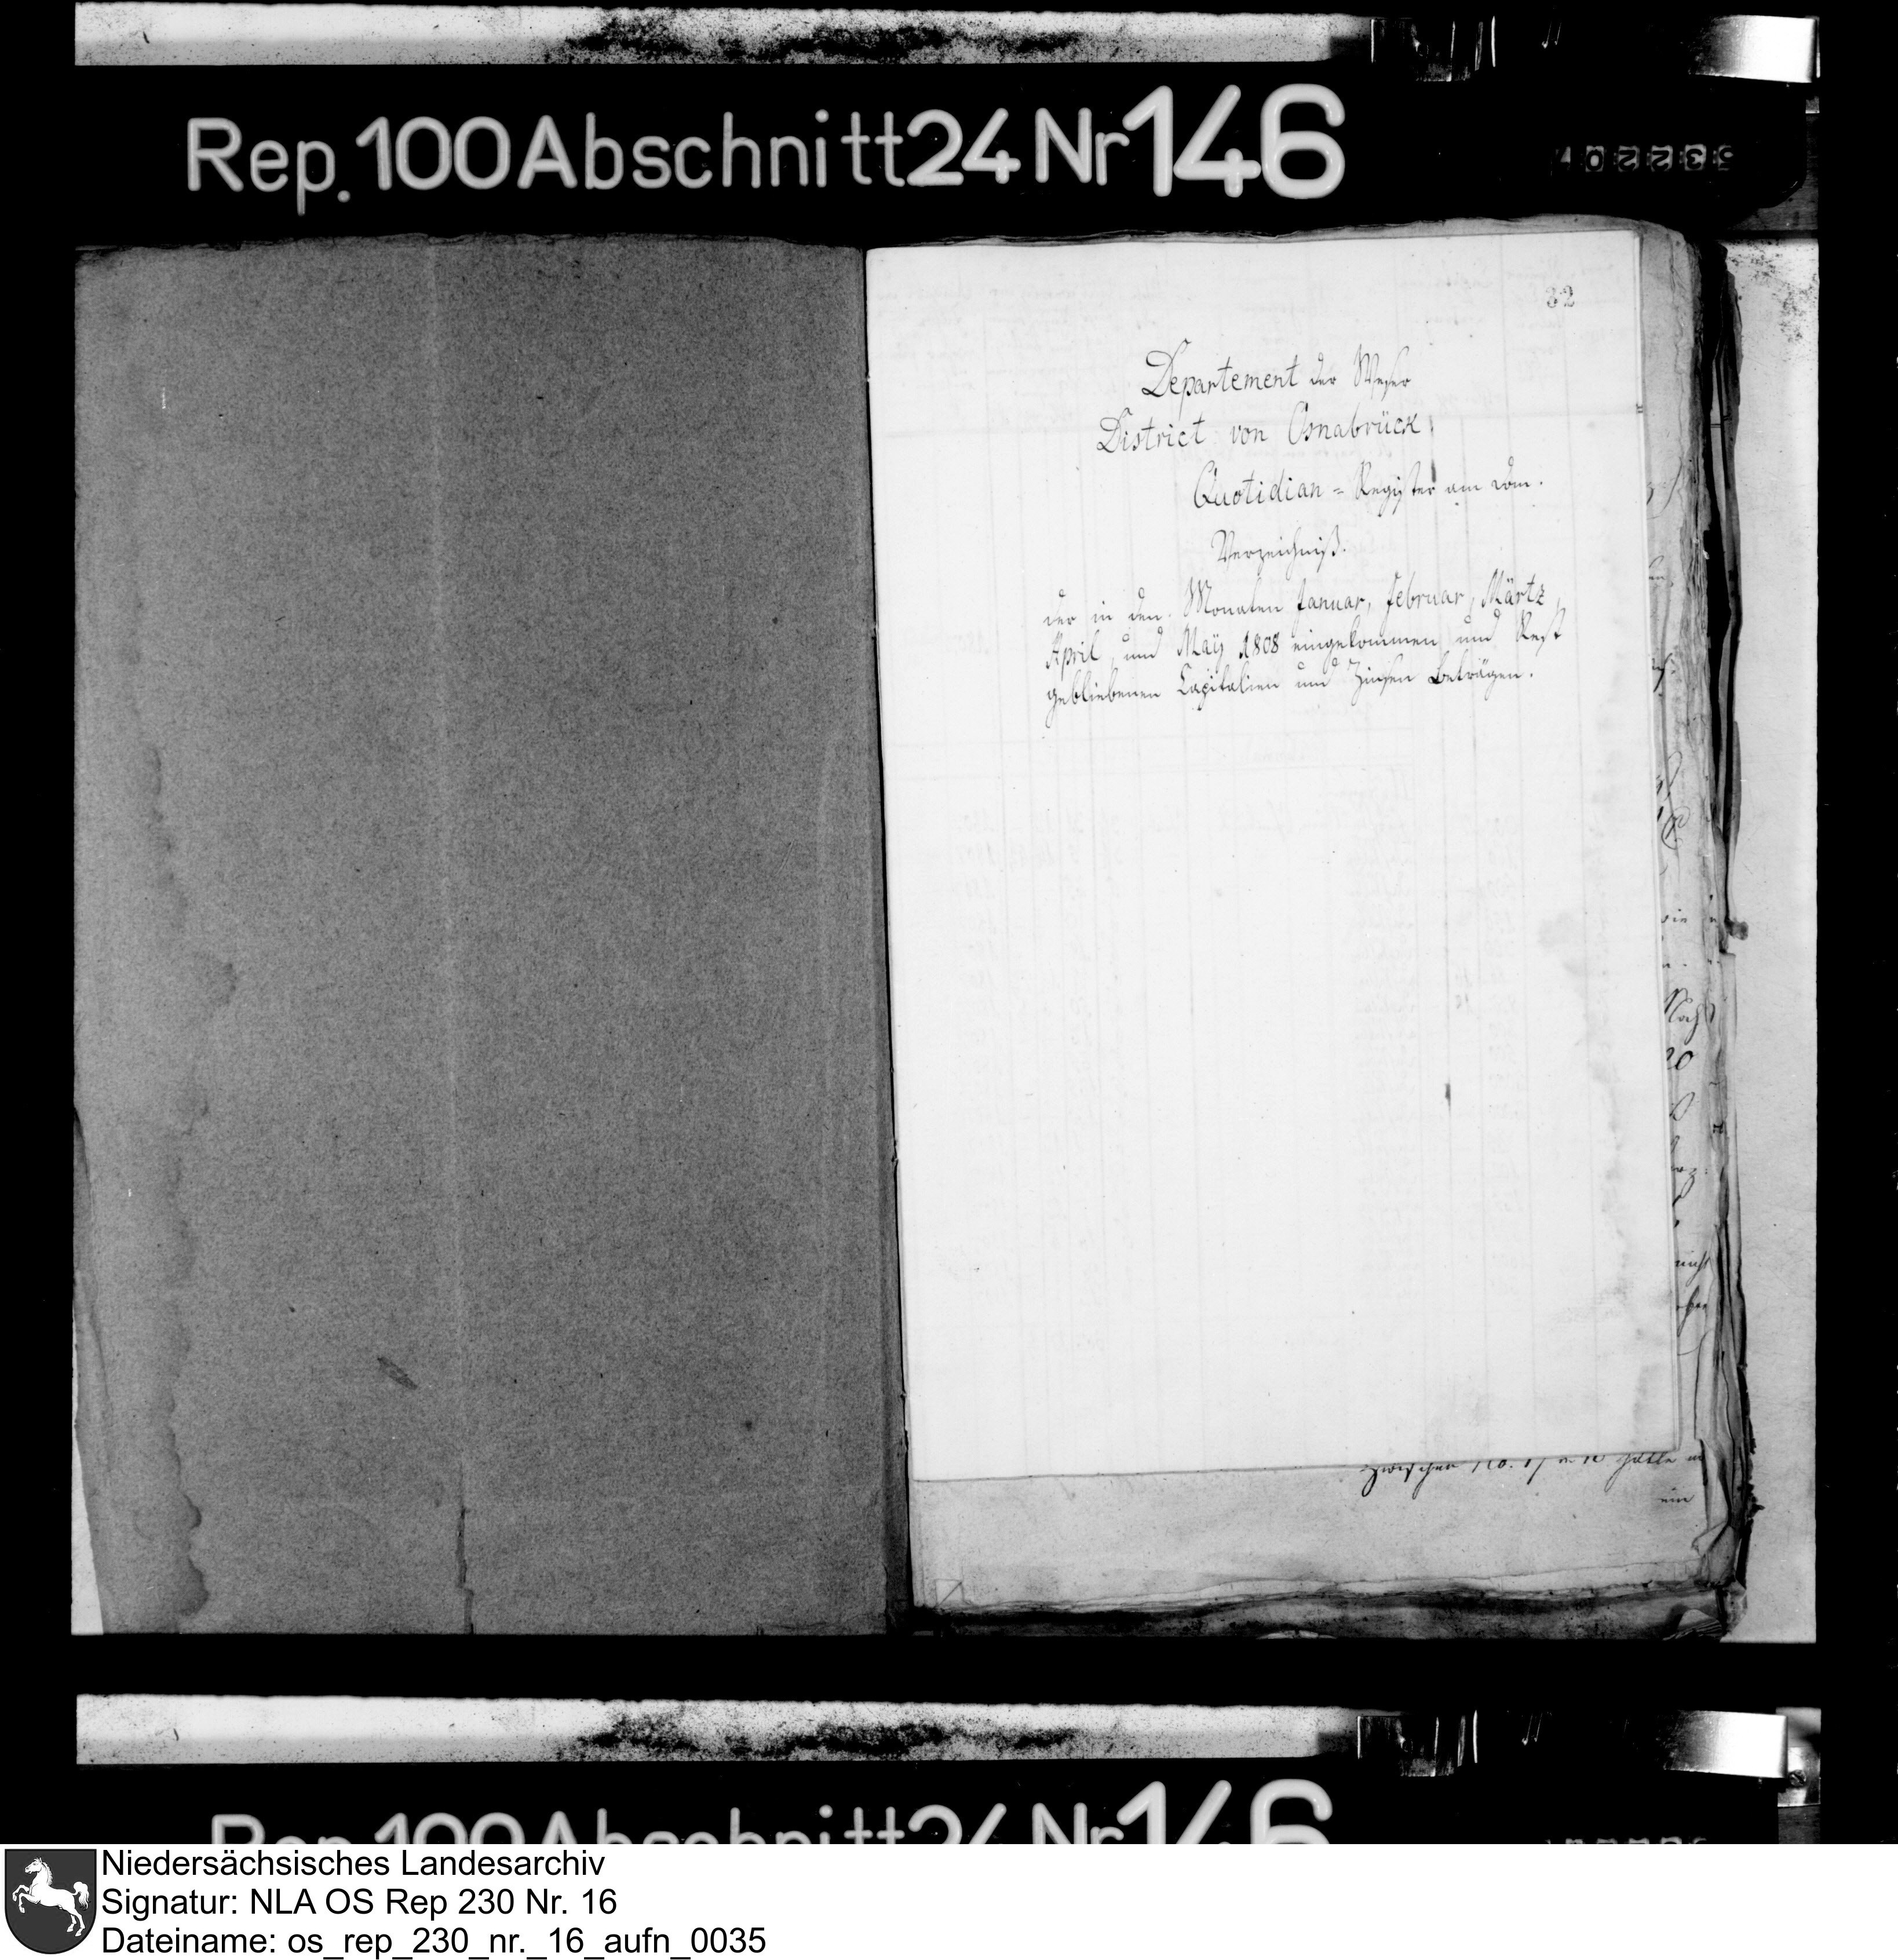 Rep. 100 Abschnitt 24 Nr 146
32
Departement der Weser
District von Osnabrück
Quotidian = Register am Dom.
Verzeichniß.
der in den Monaten Januar, Februar, Märtz,
April, und Maÿ 1808 eingekommen und Rest
gebliebenen Capitalien und Zinsen Beträgen.
zwischen No. 17
ein
Rep. 100 Abschnitt 24 Nr 146
Niedersächsisches Landesarchiv
Signatur: NLA OS Rep 230 Nr. 16
Dateiname: os_rep_230_nr._16_aufn_0035